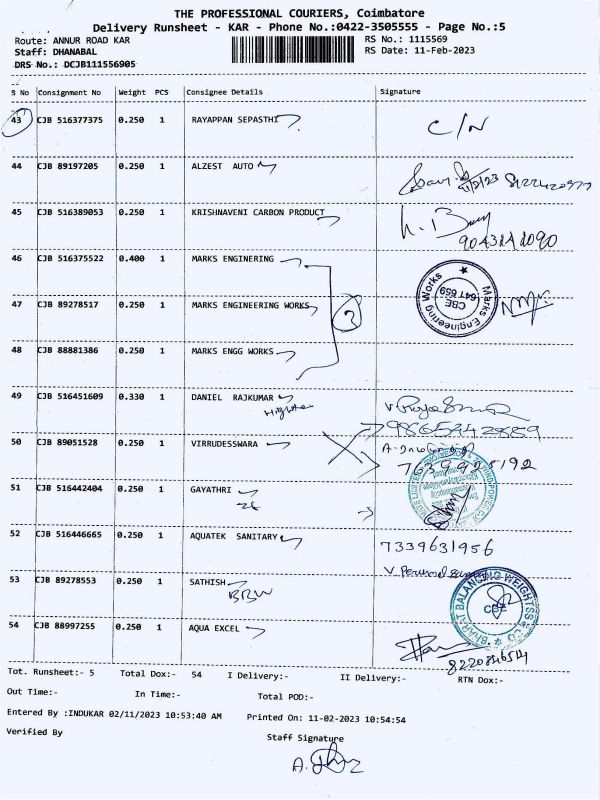 THE PROFESSIONAL COURIERS, Coimbatore
Delivery Runsheet - KAR - Phone No.:0422-3505555 - Page No.:5
Route: ANNUR ROAD KAR RS No.: 1115569
Staff: DHANABAL RS Date: 11-Feb-2023
DRS No.: DCJB111556905
S No Consignment No Weight PCS Consignee Details Signature
43 CJB 516377375 0.250 1 RAYAPPAN SEPASTHI C/N
44 CJB 89197205 0.250 1 ALZEST AUTO 11/2/23
45 CJB 516389053 0.250 1 KRISHNAVENI CARBON PRODUCT
46 CJB 516375522 0.400 1 MARKS ENGINERING
Marks Engineering Works CBE 641 659
47 CJB 89278517 0.250 1 MARKS ENGINEERING WORKS
48 CJB 88881386 0.250 1 MARKS ENGG WORKS
49 CJB 516451609 0.330 1 DANIEL RAJKUMAR
50 CJB 89051528 0.250 1 VIRRUDESSWARA
51 CJB 516442404 0.250 1 GAYATHRI
52 CJB 516446665 0.250 1 AQUATEK SANITARY 7339631956
53 CJB 89278553 0.250 1 SATHISH
BBW
BHARAT BALANCING WEIGHTSS & CO CBE
54 CJB 88997255 0.250 1 AQUA EXCEL
Tot. Runsheet:- 5 Total Dox:- 54 I Delivery:- II Delivery:- RTN Dox:-
Out Time:- In Time:- Total POD:-
Entered By :INDUKAR 02/11/2023 10:53:40 AM Printed On: 11-02-2023 10:54:54
Verified By Staff Signature